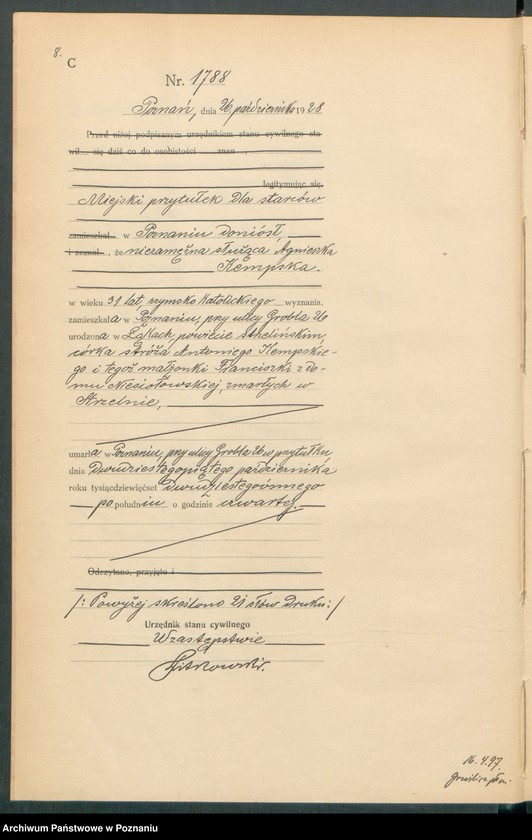 8.
C
Nr. 1788
Poznań, dnia 26 października 1928
Przed niżej podpisanym urzędnikiem stanu cywilnego sta
wił się dziś co do osobistości znan
legitymując się,
Miejski przytułek dla starców
zamieszkał w Poznaniu doniósł,
i zeznał, że niezamężna służąca Agnieszka
Kempska.
w wieku 31 lat, rzymsko katolickiego wyznania,
zamieszkała w Poznaniu, przy ulicy Grobla 26
urodzona w powiecie strelińskim,
córka stróża Antoniego Kempskie-
go i tegoż małżonki Franciszki z do-
mu zmarłych w
Strzelnie,
umarła w Poznaniu, przy ulicy Grobla 26 w przytułku
dnia dwudziestegopiątego października
roku tysiącdziewięćset dwudziestegoósmego
po południu o godzinie czwartej.
Odczytano, przyjęto i
/: Powyżej skreślono 21 słów druku :/
Urzędnik stanu cywilnego
W zastępstwie
16.4.97.
Archiwum Państwowe w Poznaniu